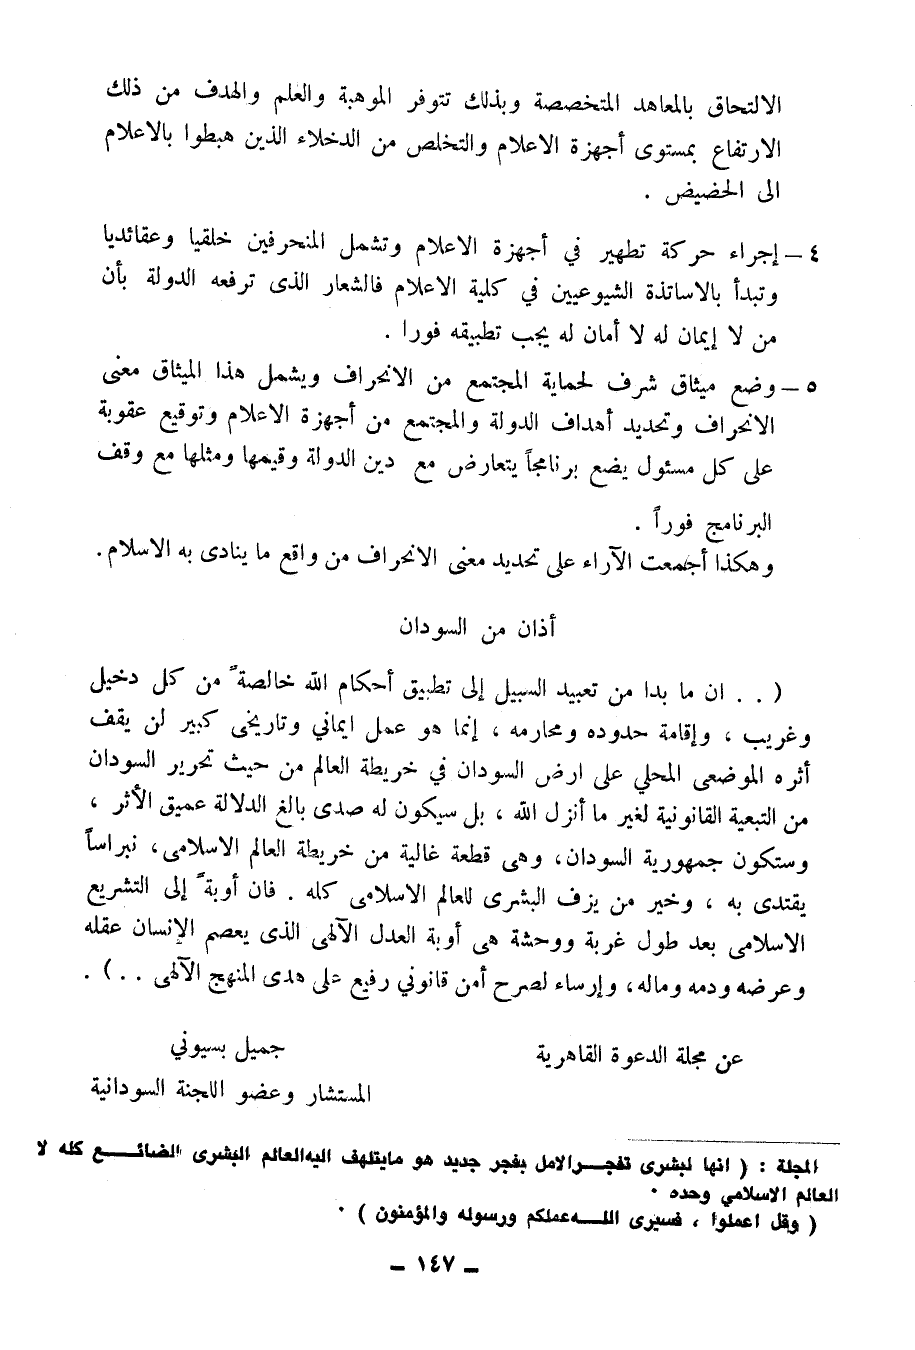 الالتحاق بالمعاهد المتخصصة وبذلك تتوفر الموهبة والعلم والهدف من ذلك
الارتفاع بمستوى أجهزة الاعلام والتخلص من الدخلاء الذين هبطوا بالاعلام
الى الحضيض .
٤ – إجراء حركة تطهير في أجهزة الاعلام وتشمل المنحرفين خلقيا وعقائديا
وتبدأ بالاساتذة الشيوعيين في كلية الاعلام فالشعار الذى ترفعه الدولة بأن
من لا إيمان له لا أمان له يجب تطبيقه فورا .
٥ – وضع ميثاق شرف لحماية المجتمع من الانحراف ويشمل هذا الميثاق معنى
الانحراف وتحديد أهداف الدولة والمجتمع من أجهزة الاعلام وتوقيع عقوبة
على كل مسئول يضع برنامجاً يتعارض مع دين الدولة وقيمها ومثلها مع وقف
البرنامج فوراً .
وهكذا أجمعت الآراء على تحديد معنى الانحراف من واقع ما ينادى به الاسلام .
أذان من السودان
( . . ان ما بدا من تعبيد السبيل إلى تطبيق أحكام الله خالصة ً من كل دخيل
وغريب ، وإقامة حدوده ومحارمه ، إنما هو عمل ايماني وتاريخى كبير لن يقف
أثره الموضعى المحلي على ارض السودان في خريطة العالم من حيث تحرير السودان
من التبعية القانونية لغير ما أنزل الله ، بل سيكون له صدى بالغ الدلالة عميق الأثر ،
وستكون جمهورية السودان، وهى قطعة غالية من خريطة العالم الاسلامى، نبراساً
يقتدى به ، وخير من يزف البشرى للعالم الاسلامى كله . فان أوبة ً إلى التشريع
الاسلامى بعد طول غربة ووحشة هى أوبة العدل الآلهى الذى يعصم الإنسان عقله
وعرضه ودمه وماله، وإرساء لصرح أمن قانوني رفيع على هدى المنهج الآلهى . . ) .
عن مجلة الدعوة القاهرية
جميل بسيوني
المستشار وعضو اللجنة السودانية
المجلة : ( انها لبشرى تفجر الامل بفجر جديد هو مايتلهف اليه العالم البشرى الضائع كله لا
العالم الاسلامي وحده .
( وقل اعملوا ، فسيرى الله عملكم ورسوله والمؤمنون ) .
– ١٤٧ –